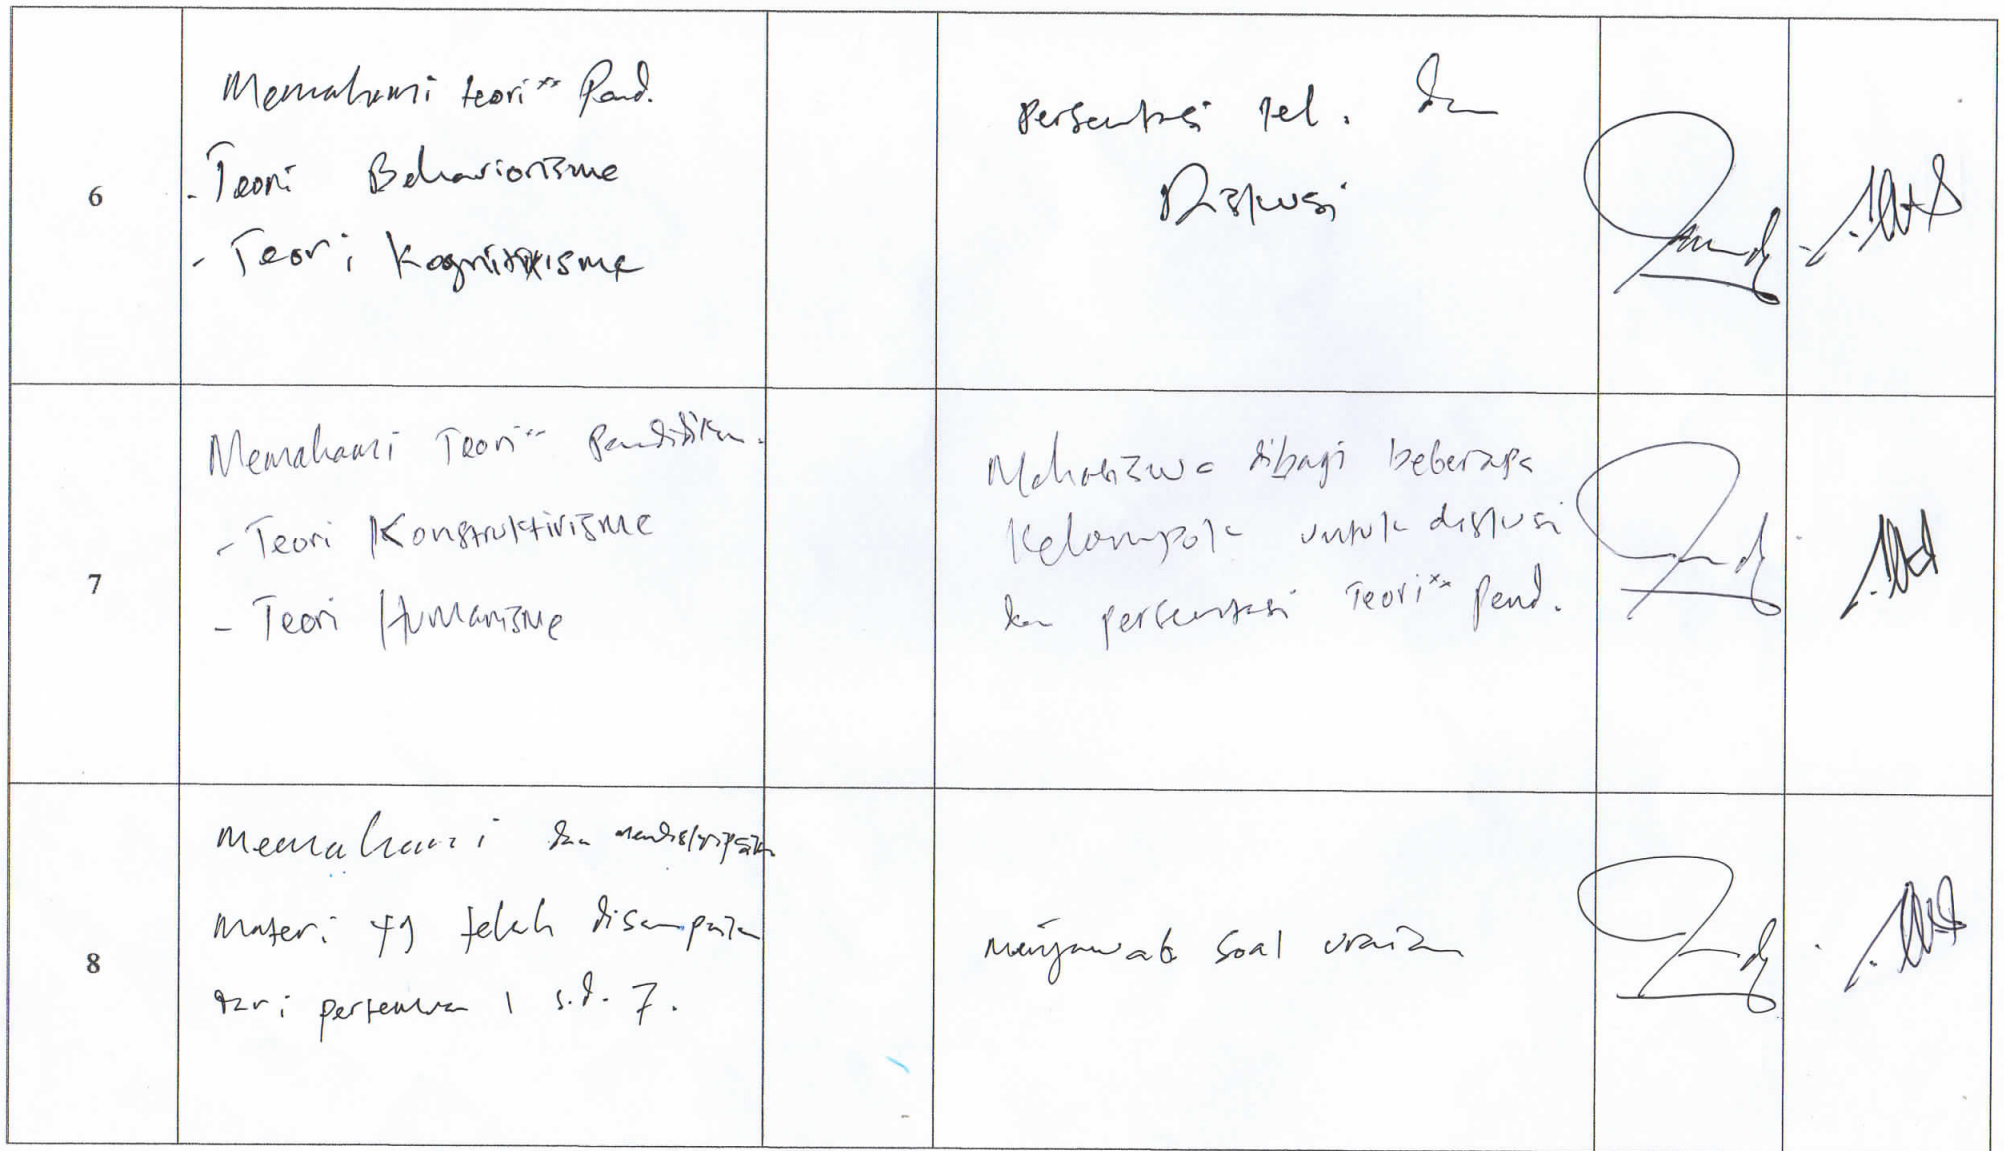 6
Memahami teori" Pend.
- Teori Behaviorisme
- Teori Kognitivisme
Persentasi kel. dan
Diskusi
7
Memahami Teori" Pendidikan.
- Teori Konstruktivisme
- Teori Humanisme
Mahasiswa dibagi beberapa
Kelompok untuk diskusi
dan persentasi Teori" Pend.
8
Memahami dan mendiskripsikan
Materi yg telah disampaikan
dari pertemuan 1 s.d. 7.
Menjawab Soal uraian